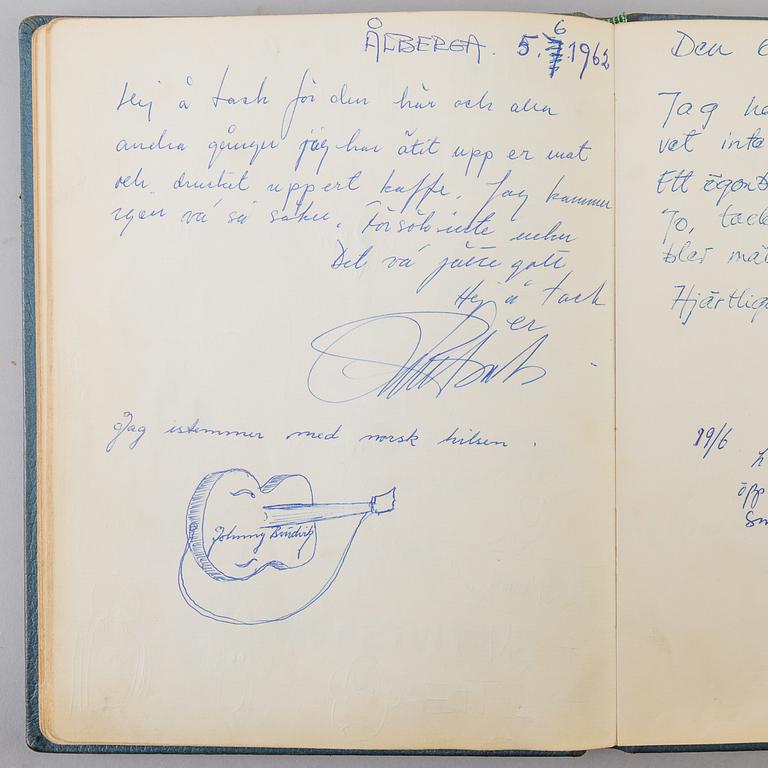 ÅLBERGA. 5.6.1962
Hej å tack för den här och alla
andra gånger jag har ätit upp er mat
och druckit upp ert kaffe. Jag kommer
igen va' så säker. Försök inte neka
Det va' jätte gott
Hej å tack
er
Jag istemmer med norsk hilsen.
Johnny
Den 6
Jag ha
vet inte
Ett ögonb
Jo, tack
blev mä
Hjärtliga
19/6
öpp
Sm